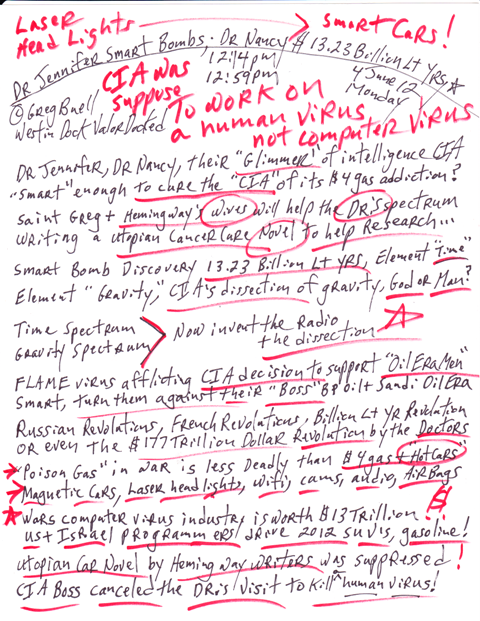 Laser Head Lights → Smart Cars!
Dr Jennifer Smart Bombs; Dr Nancy $13.23 Billion Lt yrs
12:14pm
12:59pm
4 June 12
Monday
© Greg Buell
Westin Dock
CIA was suppose
To work on a human virus
not computer virus
Dr Jennifer, Dr Nancy, their "Glimmer" of intelligence CIA
"smart" enough to cure the "CIA" of its $4 gas addiction?
Saint Greg + Hemingway's Wives will help the Dr's spectrum
writing a utopian Cancer Care Novel to help Research...
Smart Bomb Discovery 13.23 Billion Lt yrs, Element "Time"
Element "Gravity," CIA's dissection of gravity, God or Man?
Time Spectrum
Gravity Spectrum > Now invent the Radio
the dissection
FLAME virus afflicting CIA decision to support "Oil Era Men"
Smart, turn them against their "Boss" BP oil + Saudi Oil Era
Russian Revolutions, French Revolutions, Billion Lt yr Revolution
or even the $177 Trillion Dollar Revolution by the Doctors
"Poison Gas" in war is less Deadly than $4 gas + "Hot Cars"
Magnetic Cars, Laser head lights, Wifi, cams, audio, Air Bags
Wars computer virus industry is worth $13 Trillion!!
US + Israel programmers drive 2012 SUV's, gasoline!
utopian Car Novel by Hemingway Writers was suppressed!
CIA Boss canceled the DR's visit to Kill human virus!